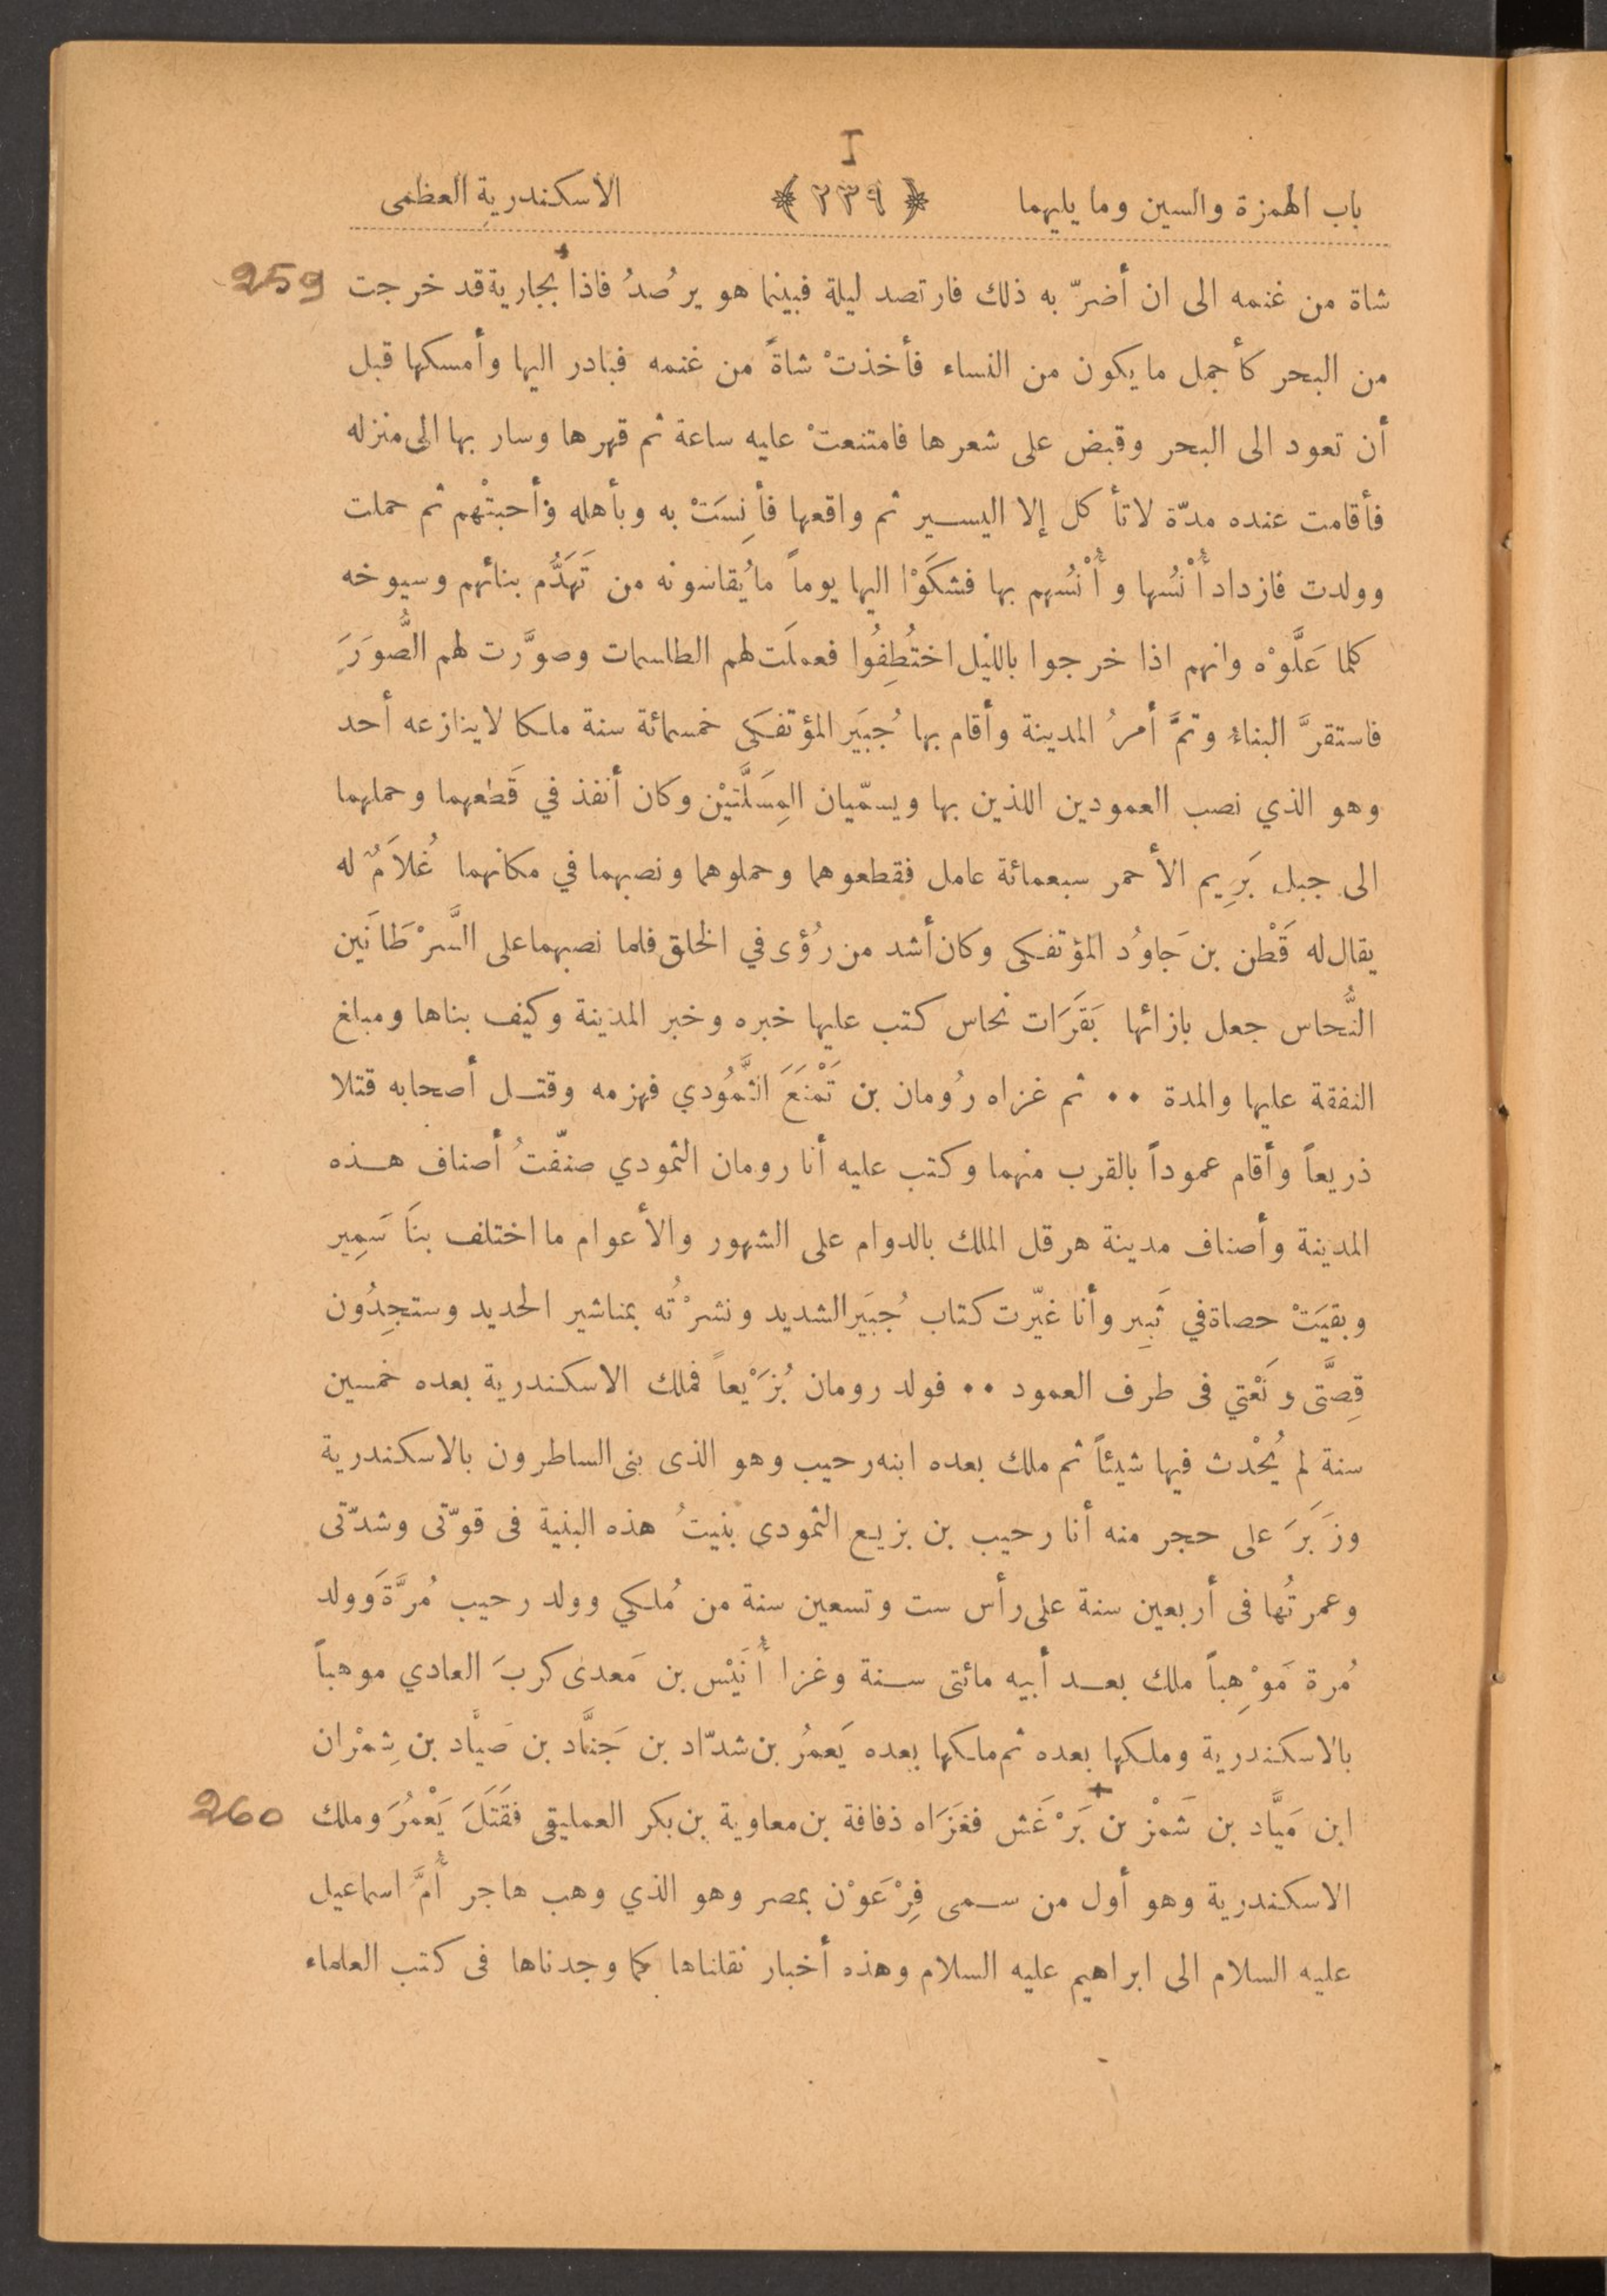 I
باب الهمزة والسين وما يليهما ﴿ ٢٣٩ ﴾ الاسكندرية العظمى
شاة من غنمه الى ان أضرّ به ذلك فارتصد ليلة فبينما هو يرصُدُ فاذا بجارية قد خرجت 259
من البحر كأجمل ما يكون من النساء فأخذتْ شاةً من غنمه فبادر اليها وأمسكها قبل
أن تعود الى البحر وقبض على شعرها فامتنعتْ عليه ساعة ثم قهرها وسار بها الى منزله
فأقامت عنده مدّة لا تأكل إلا اليسير ثم واقعها فأَنِسَتْ به وبأهله وأحبتْهم ثم حملت
وولدت فازداد أُنْسُها وأُنْسُهم بها فشكَوْا اليها يوماً ما يُقاسونه من تَهَدُّم بنائهم وسيوخه
كلما عَلَّوْه وانهم اذا خرجوا بالليل اختُطِفُوا فعملَت لهم الطلسمات وصوَّرت لهم الصُّوَرَ
فاستقرَّ البناءُ وتمَّ أمرُ المدينة وأقام بها جُبَيَر المؤتفكى خمسمائة سنة ملكا لاينازعه أحد
وهو الذي نصب العمودين اللذين بها ويسمّيان المِسَلَّتيْن وكان أنفذ في قَطعهما وحملهما
الى جبل بَرِيم الأحمر سبعمائة عامل فقطعوهما وحملوهما ونصبهما في مكانهما غُلاَمٌ له
يقال له قَطْن بن جَاوُد المؤتفكى وكان أشد من رُؤى في الخلق فلما نصبهما على السَّرْطَانَين
النُّحاس جعل بازائها بَقَرَات نحاس كتب عليها خبره وخبر المدينة وكيف بناها ومبلغ
النفقة عليها والمدة •• ثم غزاه رُومان بن تَمْنَعَ الثَّمُودي فهزمه وقتـل أصحابه قتلا
ذريعاً وأقام عموداً بالقرب منهما وكتب عليه أنا رومان الثمودي صنّفتُ أصناف هـذه
المدينة وأصناف مدينة هرقل الملك بالدوام على الشهور والأعوام ما اختلف بنَا سَمِير
وبقيَتْ حصاة في ثَبِير وأنا غيّرت كتاب جُبَيَر الشديد ونشرْتُه بمناشير الحديد وستجِدُون
قِصَّتى ونَعْتي فى طرف العمود •• فولد رومان بُزَيْعاً فملك الاسكندرية بعده خمسين
سنة لم يُحْدث فيها شيئاً ثم ملك بعده ابنه رحيب وهو الذى بنى الساطرون بالاسكندرية
وزَبَرَ على حجر منه أنا رحيب بن بزيع الثمودى بنيتُ هذه البنية فى قوّتى وشدّتى
وعمرتُها فى أربعين سنة على رأس ست وتسعين سنة من مُلكي وولد رحيب مُرَّةَ وولد
مُرة مَوْهِباً ملك بعـد أبيه مائتى سـنة وغزا أُنَيْس بن مَعدى كربَ العادي موهباً
بالاسكندرية وملكها بعده ثم ملكها بعده يَعمرُ بن شدّاد بن جَنَّاد بن صَيَّاد بن شِمْران
ابن مَيَّاد بن شَمْز بن بَرْغَش فغَزَاه ذفافة بن معاوية بن بكر العمليقى فقَتَلَ يَعْمُرَ وملك 260
الاسكندرية وهو أول من سـمى فِرْعَوْن بمصر وهو الذي وهب هاجر أُمَّ اسماعيل
عليه السلام الى ابراهيم عليه السلام وهذه أخبار نقلناها كما وجدناها فى كتب العلماء